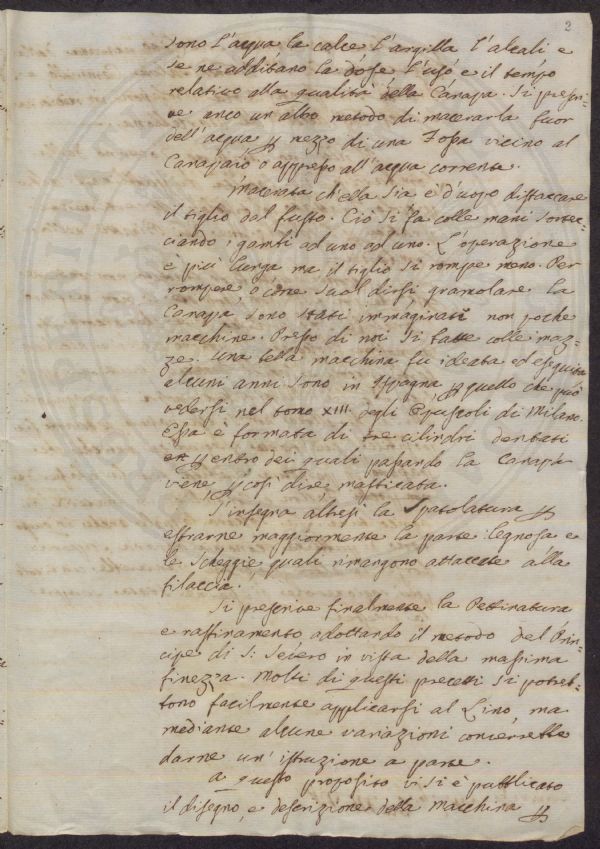 2
sono l'acqua, la calce l'argilla l'alcali e
se ne additano la dose l'uso e il tempo
relativo alla qualità della Canapa. Si prescri-
ve anco un'altro metodo di macerarla fuor
dell'acqua p mezzo di una Fossa vicino al
Canapaio o appresso all'acqua corrente.
Macerata ch'ella sia è d'uopo distaccare
il tiglio dal fusto. Ciò si fa colle mani scortec-
ciando i gambi ad uno ad uno. L'operazione
è più lunga ma il tiglio si rompe meno. Per
rompere, o come suol dirsi gramolare la
Canapa, sono stati immaginati non poche
macchine. Presso di noi si batte colle maz-
ze. Una bella macchina fu ideata ed eseguita
alcuni anni sono in Ispagna, p quello che può
vedersi nel tomo XIII. degli Opuscoli di Milano.
Essa è formata di tre cilindri dentati
entro dei quali passando la Canapa
viene, p così dire, masticata.
S'insegna altresì la Spatolatura p
estrarne maggiormente la parte legnosa e
le scheggie quali rimangono attaccate alla
filaccia.
Si prescrive finalmente la Pettinatura
e raffinamento adottando il metodo del Prin-
cipe di S: Severo in vista della massima
finezza. Molti di questi precetti si potreb-
bono facilmente applicarsi al Lino, ma
mediante alcune variazioni converrebbe
darne un'istruzione a parte.
A questo proposito vi si è pubblicato
il disegno, e descrizione della Macchina p